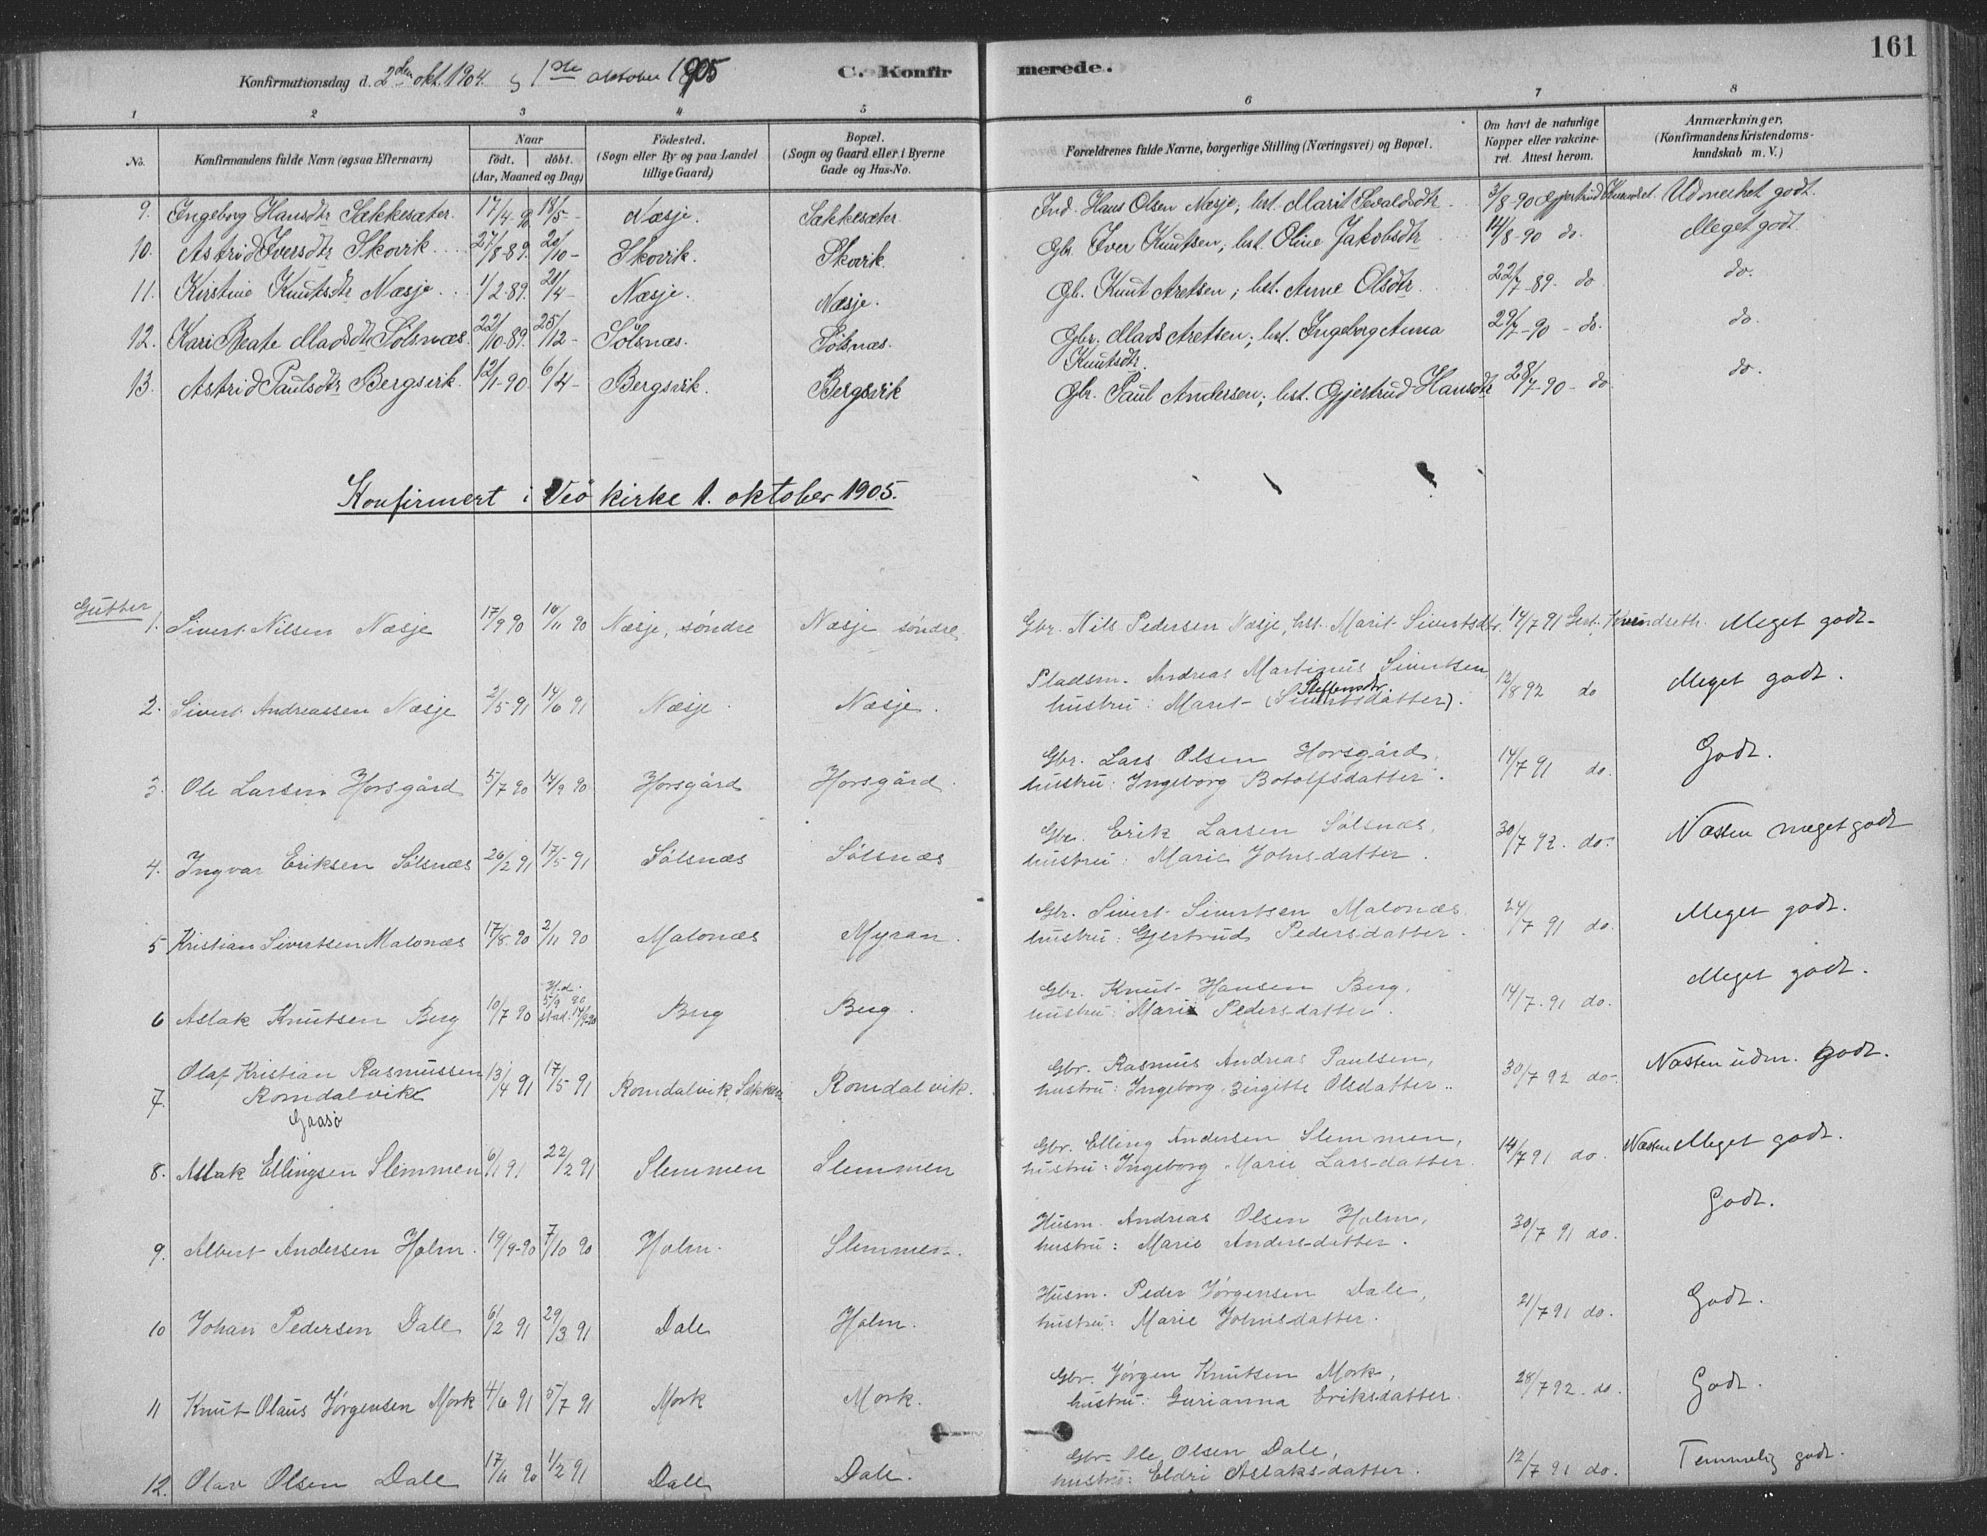 161
Konfirmationsdag d. 2den okt. 1904. og 1ste oktober 1905 C. Konfirmerede.
1 2 3 4 5 6 7 8
No. Konfirmandens fulde Navn (ogsaa Efternavn) Naar födt. döbt. (Aar, Maaned og Dag) Födested. (Sogn eller By og paa Landet tillige Gaard) Bopæl. (Sogn og Gaard eller i Byerne Gade og Hus-No. Forældrenes fulde Navne, borgerlige Stilling (Næringsvei) og Bopæl. Om havt de naturlige Kopper eller vakcineret. Attest herom. Anmærkninger, (Konfirmandens Kristendomskundskab m. V.)
9. Ingeborg Hansdtr Sækkesæter. 17/4-90 18/5- Næsje. Sækkesæter Ind. Hans Olsen Næsje; hst. Marit Sevaldsdtr 3/8-90 Gjertrud Udmerket godt.
10. Astrid Iversdtr Skovik 27/8-89. 20/10- Skovik. Skovik. Gbr. Iver Knutsen; hst. Oline Jakobsdtr 14/8-90 do. Meget godt.
11. Kirstine Knutsdtr Næsje. 1/2-89. 21/4- Næsje. Næsje. Gbr. Knut Aretsen; hst. Anne Olsdtr. 22/7-89. do do.
12. Kari Beate Madsdtr Sölsnæs. 22/10-89. 25/12- Sölsnæs. Sölsnæs. Gbr. Mads Aretsen; hst. Ingeborg Anna Knutsdtr. 29/7-90 - do. do.
13. Astrid Paulsdtr Bergsvik. 12/1-90 6/4- Bergsvik. Bergsvik Gbr. Paul Andersen; hst. Gjertrud Hansdtr 28/7-90 - do do.
Konfirmert i Veö kirke 1. oktober 1905.
Gutter
1. Sivert Nilsen Næsje 17/9 90 10/11 90 Næsje, søndre Næsje søndre. Gbr. Nils Pedersen Næsje, hst. Marit Sivertsdtr. 14/7 91 Gert. Kvendseth. Meget godt.
2. Sivert Andreassen Næsje 2/5 91 14/6 91 Næsje. Næsje. Pladsm. Andreas Martinus Sivertsen,
hustru: Marit (Sivertsdatter). Steffensdtr. 12/8 92 do Meget godt.
3. Ole Larsen Horsgård 5/7 90 14/9 90 Horsgård Horsgård. Gbr. Lars Olsen Horsgård,
hustru: Ingeborg Botolfsdatter. 14/7 91 do. Godt.
4. Ingvar Eriksen Sølsnæs 26/2 91 17/5 91 Sølsnæs Sølsnæs Gbr. Erik Larsen Sølsnæs,
hustru: Marie Johnsdatter. 30/7 92. do. Næsten meget godt
5 Kristian Sivertsen Malonæs 17/8 90 2/11 90 Malonæs Myran. Gbr. Sivert Sivertsen Malonæs
hustru: Gjertrud Pedersdatter. 24/7 91 do. Meget godt.
6 Aslak Knutsen Berg 10/7 90 H.d. 5/9 90 stad. 14/9 90 Berg Berg. Gbr. Knut Hansen Berg,
hustru: Marie Pedersdatter. 14/7. 91 do. Meget godt.
7. Olaf Kristian Rasmussen Romdalvik Gaasø 13/4 91 17/5 91 Romdalvik, Sækken Romdalvik. Gbr. Rasmus Andreas Paulsen,
hustru: Ingeborg Birgitte Olsdatter. 30/7 92 do. Næsten udm. godt.
8. Aslak Ellingsen Slemmen 6/1 91 22/2 91 Slemmen Slemmen Gbr. Elling Andersen Slemmen,
hustru: Ingeborg Marie Larsdatter. 14/7 91 do. Næsten Meget godt.
9. Albert Andersen Holm. 19/9-90 7/10 90 Holm. Slemmen. Husm. Andreas Olsen Holm,
hustru: Marie Andersdatter. 30/7 91 do. Godt.
10 Johan Pedersen Dale 6/2 91 29/3 91 Dale Holm. Husm. Peder Jørgensen Dale,
hustru: Marie Johnsdatter. 21/7 91 do. Godt.
11 Knut Olaus Jørgensen Mork 4/6 91 5/7 91 Mork Mork. Gbr. Jørgen Knutsen Mork,
hustru: Gurianna Eriksdatter. 28/7 92. do. Godt.
12. Olav Olsen Dale 17/11 90 1/2 91 Dale Dale. Gbr. Ole Olsen Dale,
hustru: Eldri Aslaksdatter. 12/7 91 do. Temmelig godt.